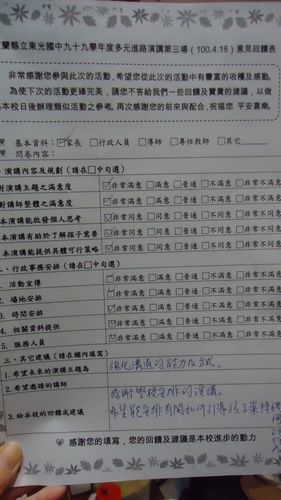 宜蘭縣立東光國中九十九學年度多元進路演講第三場(100.4.18)意見回饋表
非常感謝您參與此次的活動,希望您從此次的活動中有豐富的收穫及感動,
為使下次的活動更臻完美,請您不吝給我們一些回饋及寶貴的建議,以做
為本校日後辦理類似活動之參考。再次感謝您的前來與配合,祝福您 平安喜樂.
基本資料:☑家長 □行政人員 □導師 □專任教師 □其它
問卷內容:
演講內容及規劃(請在□中勾選)
對演講主題之滿意度 ☑非常滿意 □滿意 □普通 □不滿意 □非常不滿意
對講師整體之滿意度 ☑非常滿意 □滿意 □普通 □不滿意 □非常不滿意
本演講能啟發個人思考 ☑非常同意 □同意 □普通 □不同意 □非常不同意
本演講有助於了解孩子需要 ☑非常同意 □同意 □普通 □不同意 □非常不同意
本演講能提供具體可行策略 ☑非常同意 □同意 □普通 □不同意 □非常不同意
二、行政事務安排(請在□中勾選)
1. 活動宣傳 ☑非常滿意 □滿意 □普通 □不滿意 □非常不滿意
2. 場地安排 ☑非常滿意 □滿意 □普通 □不滿意 □非常不滿意
3. 時間安排 ☑非常滿意 □滿意 □普通 □不滿意 □非常不滿意
4. 相關資料提供 ☑非常滿意 □滿意 □普通 □不滿意 □非常不滿意
5. 服務人員 ☑非常滿意 □滿意 □普通 □不滿意 □非常不滿意
三、其它建議(請在欄內填寫)
1.希望未來的演講主題為 溝通的能力及方式。
2.希望邀請的講師
3.給本校的回饋或建議 感謝學校安排的演講。
希望能安排有關如何引導孩子
感謝您的填寫,您的回饋及建議是本校進步的動力